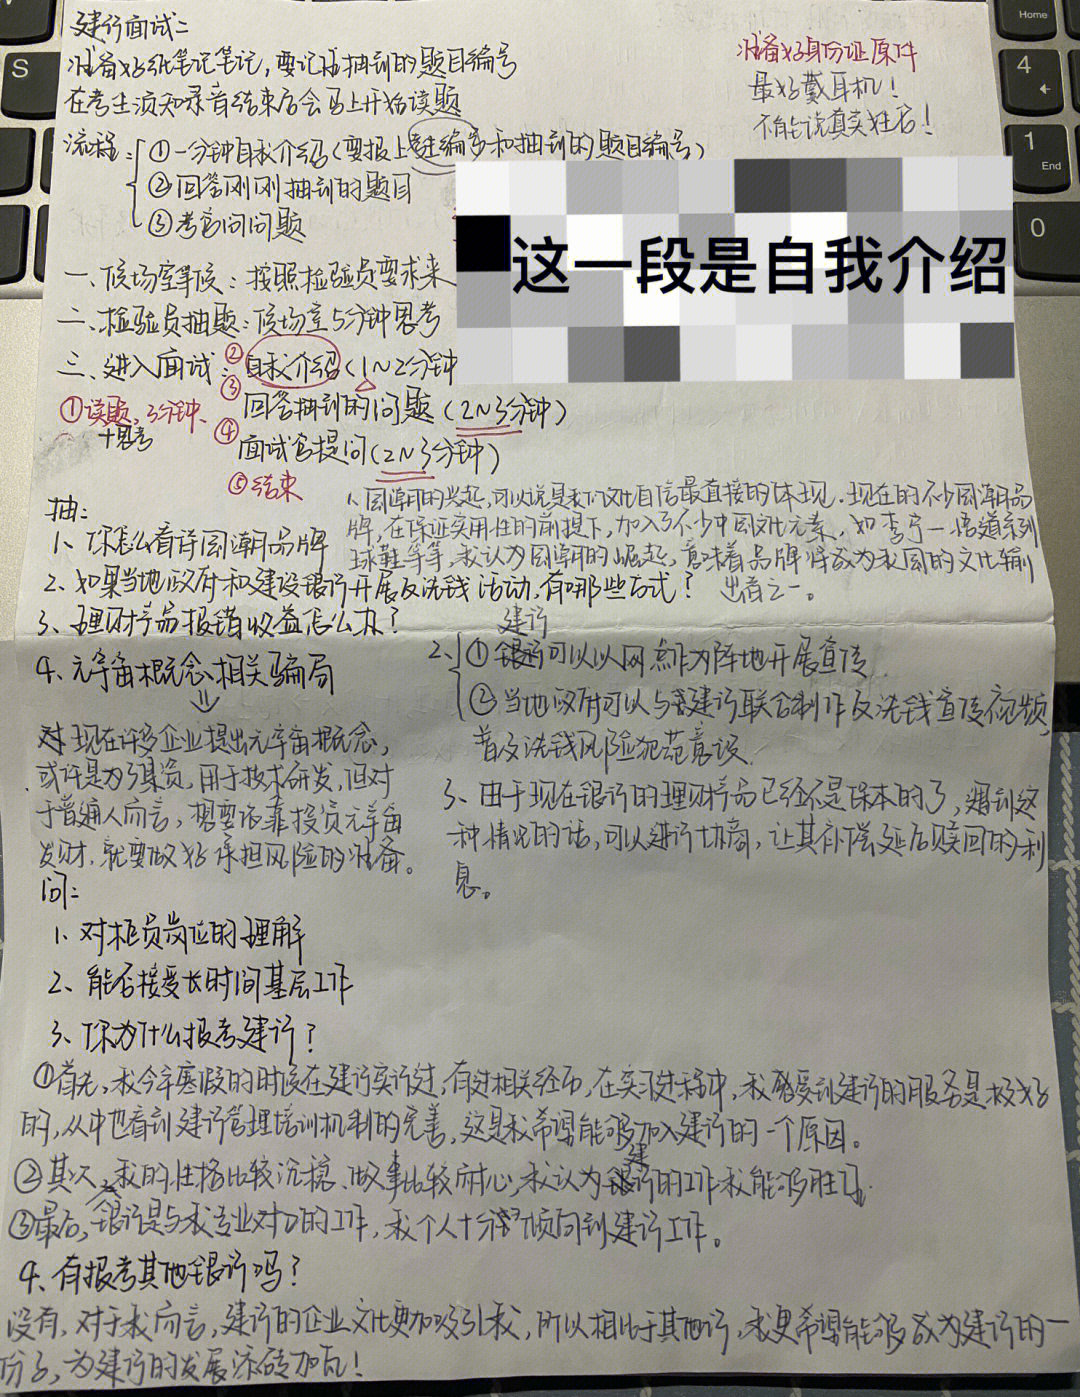 建行面试：
准备好纸笔记笔记，要记住抽到的题目编号
在考生须知录音结束后会马上开始读题
准备好身份证原件
最好戴耳机！
不能说真实姓名！
流程：①一分钟自我介绍（要报上考生编号和抽到的题目编号）
②回答刚刚抽到的题目
③考官问问题
这一段是自我介绍
一、候场室等候：按照检验员要求来
二、检验员抽题：候场室5分钟思考
三、进入面试：②自我介绍（1~2分钟
①读题，3分钟、
+思考
③回答抽到的问题（2~3分钟）
④面试官提问（2~3分钟）
⑤结束
抽：
1、你怎么看待国潮品牌
1、国潮的兴起，可以说是我们文化自信最直接的体现。现在的不少国潮品
牌，在保证实用性的前提下，加入了不少中国文化元素，如李宁—悟道系列
球鞋等等，我认为国潮的崛起，意味着品牌将成为我国的文化输
出者之一。
2、如果当地政府和建设银行开展反洗钱活动，有哪些方式？
3、理财产品报错收益怎么办？
4、元宇宙概念、相关骗局
对现在许多企业提出元宇宙概念，
或许是为了集资，用于技术研发，但对
于普通人而言，想要依靠投资元宇宙
发财，就要做好承担风险的准备。
建行
2、①银行可以以网点作为阵地开展宣传
②当地政府可以与建行联合制作反洗钱宣传视频，
普及洗钱风险犯范意识
3、由于现在银行的理财产品已经不是保本的了，遇到这
种情况的话，可以进行协商，让其补偿延后赎回的利
息。
问：
1、对柜员岗位的理解
2、能否接受长时间基层工作
3、你为什么报考建行？
①首先，我今年寒假的时候在建行实习过，有过相关经历，在实习过程中，我感受到建行的服务是极好
的，从中也看到建行管理培训机制的完善，这是我希望能够加入建行的一个原因。
②其次，我的性格比较沉稳、做事比较耐心，我认为建行的工作我能够胜任
③最后，银行是与我专业对口的工作，我个人十分倾向到建行工作。
4、有报考其他银行吗？
没有，对于我而言，建行的企业文化更加吸引我，所以相比于其他行，我更希望能够成为建行的一
份子，为建行的发展添砖加瓦！
S
Home
4
1
End
0